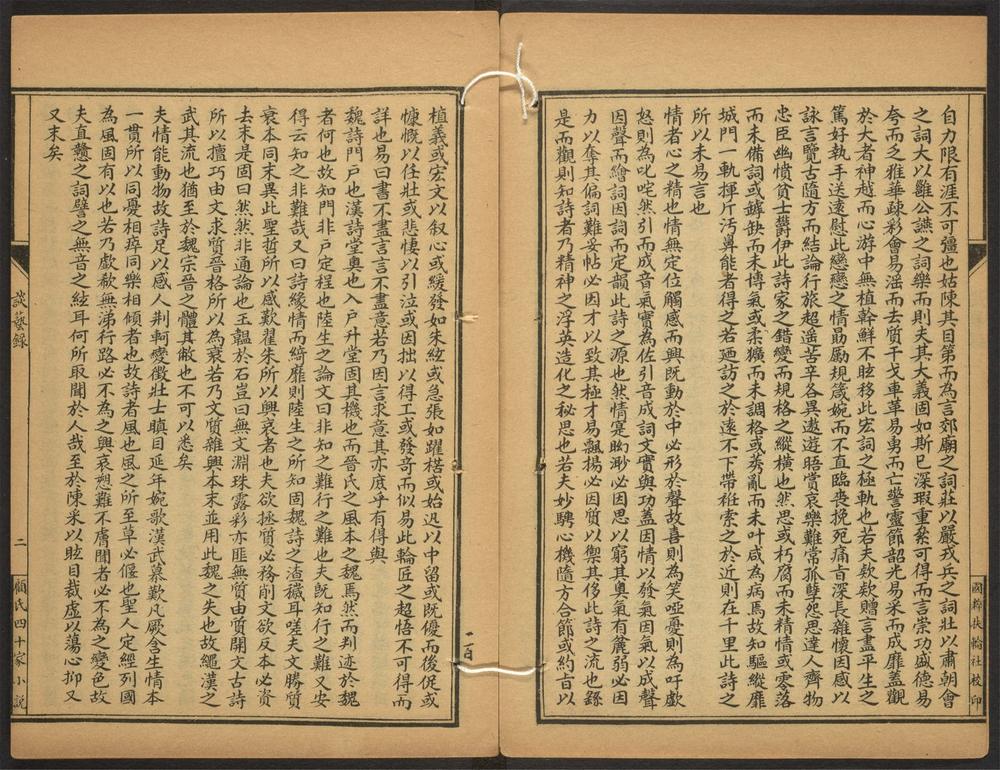 國粹扶輪社校印
自力限有涯不可彊也姑陳其目第而為言郊廟之詞莊以嚴戎兵之詞壯以肅朝會
之詞大以雝公讌之詞樂而則夫其大義固如斯已深瑕重纇可得而言崇功盛德易
夸而乏雅華疎彩會易滛而去質干戈車革易勇而亡警靈節韶光易采而成靡蓋觀
於大者神越而心游中無植幹鮮不眩移此宏詞之極軌也若夫欵欵贈言盡平生之
篤好執手送遠慰此戀戀之情勗勵規箴婉而不直臨喪挽死痛旨深長雜懷因感以
詠言覽古隨方而結論行旅超遥苦辛各異遨遊晤賞哀樂難常孤孽怨思達人齊物
忠臣幽憤貧士鬱伊此詩家之錯變而規格之縱橫也然思或朽腐而未精情或零落
而未備詞或罅缺而未博氣或柔獷而未調格或莠亂而未叶咸為病焉故知驅縱靡
城門一軌揮斤污鼻能者得之若廼訪之於遠不下帶袵索之於近則在千里此詩之
所以未易言也
情者心之精也情無定位觸感而興既動於中必形於聲故喜則為笑啞憂則為吁歔
怒則為叱咤然引而成音氣實為佐引音成詞文實與功蓋因情以發氣因氣以成聲
因聲而繪詞因詞而定韻此詩之源也然情寔眇渺必因思以窮其奧氣有麄弱必因
力以奪其偏詞難妥帖必因才以致其極才易飄揚必因質以禦其侈此詩之流也繇
是而觀則知詩者乃精神之浮英造化之秘思也若夫妙騁心機隨方合節或約旨以
植義或宏文以叙心或緩發如朱絃或急張如躍楛或始迅以中留或既優而後促或
慷慨以任壯或悲悽以引泣或因拙以得工或發奇而似易此輪匠之超悟不可得而
詳也易曰書不盡言言不盡意若乃因言求意其亦庶乎有得與
魏詩門戶也漢詩堂奧也入戶升堂固其機也而晉氏之風本之魏焉然而判迹於魏
者何也故知門非戶定程也陸生之論文曰非知之難行之難也夫既知行之難又安
得云知之非難哉又曰詩緣情而綺靡則陸生之所知固魏詩之渣穢耳嗟夫文勝質
衰本同末異此聖哲所以感歎翟朱所以興哀者也夫欲拯質必務削文欲反本必資
去末是固曰然然非通論也玉韞於石豈曰無文淵珠露彩亦匪無質由質開文古詩
所以擅巧由文求質晉格所以為衰若乃文質雜興本末並用此魏之失也故繩漢之
武其流也猶至於魏宗晉之體其敝也不可以悉矣
夫情能動物故詩足以感人荆軻變徵壯士瞋目延年婉歌漢武慕歎凡厥含生情本
一貫所以同憂相瘁同樂相傾者也故詩者風也風之所至草必偃也聖人定經列國
為風固有以也若乃歔欷無涕行路必不為之興哀愬難不膚聞者必不為之變色故
夫直戇之詞譬之無音之絃耳何所取聞於人哉至於陳采以眩目裁虛以蕩心抑又
又末矣
談藝錄
二
顧氏四十家小說